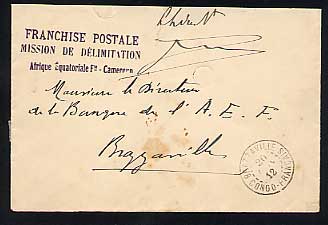 FRANCHISE POSTALE
MISSION DE DÉLIMITATION
Afrique Equatoriale Fse - Cameroun
Monsieur le Directeur
de la Banque de l'A. E. F.
Brazzaville
BRAZZAVILLE
12
CONGO-FRANÇAIS